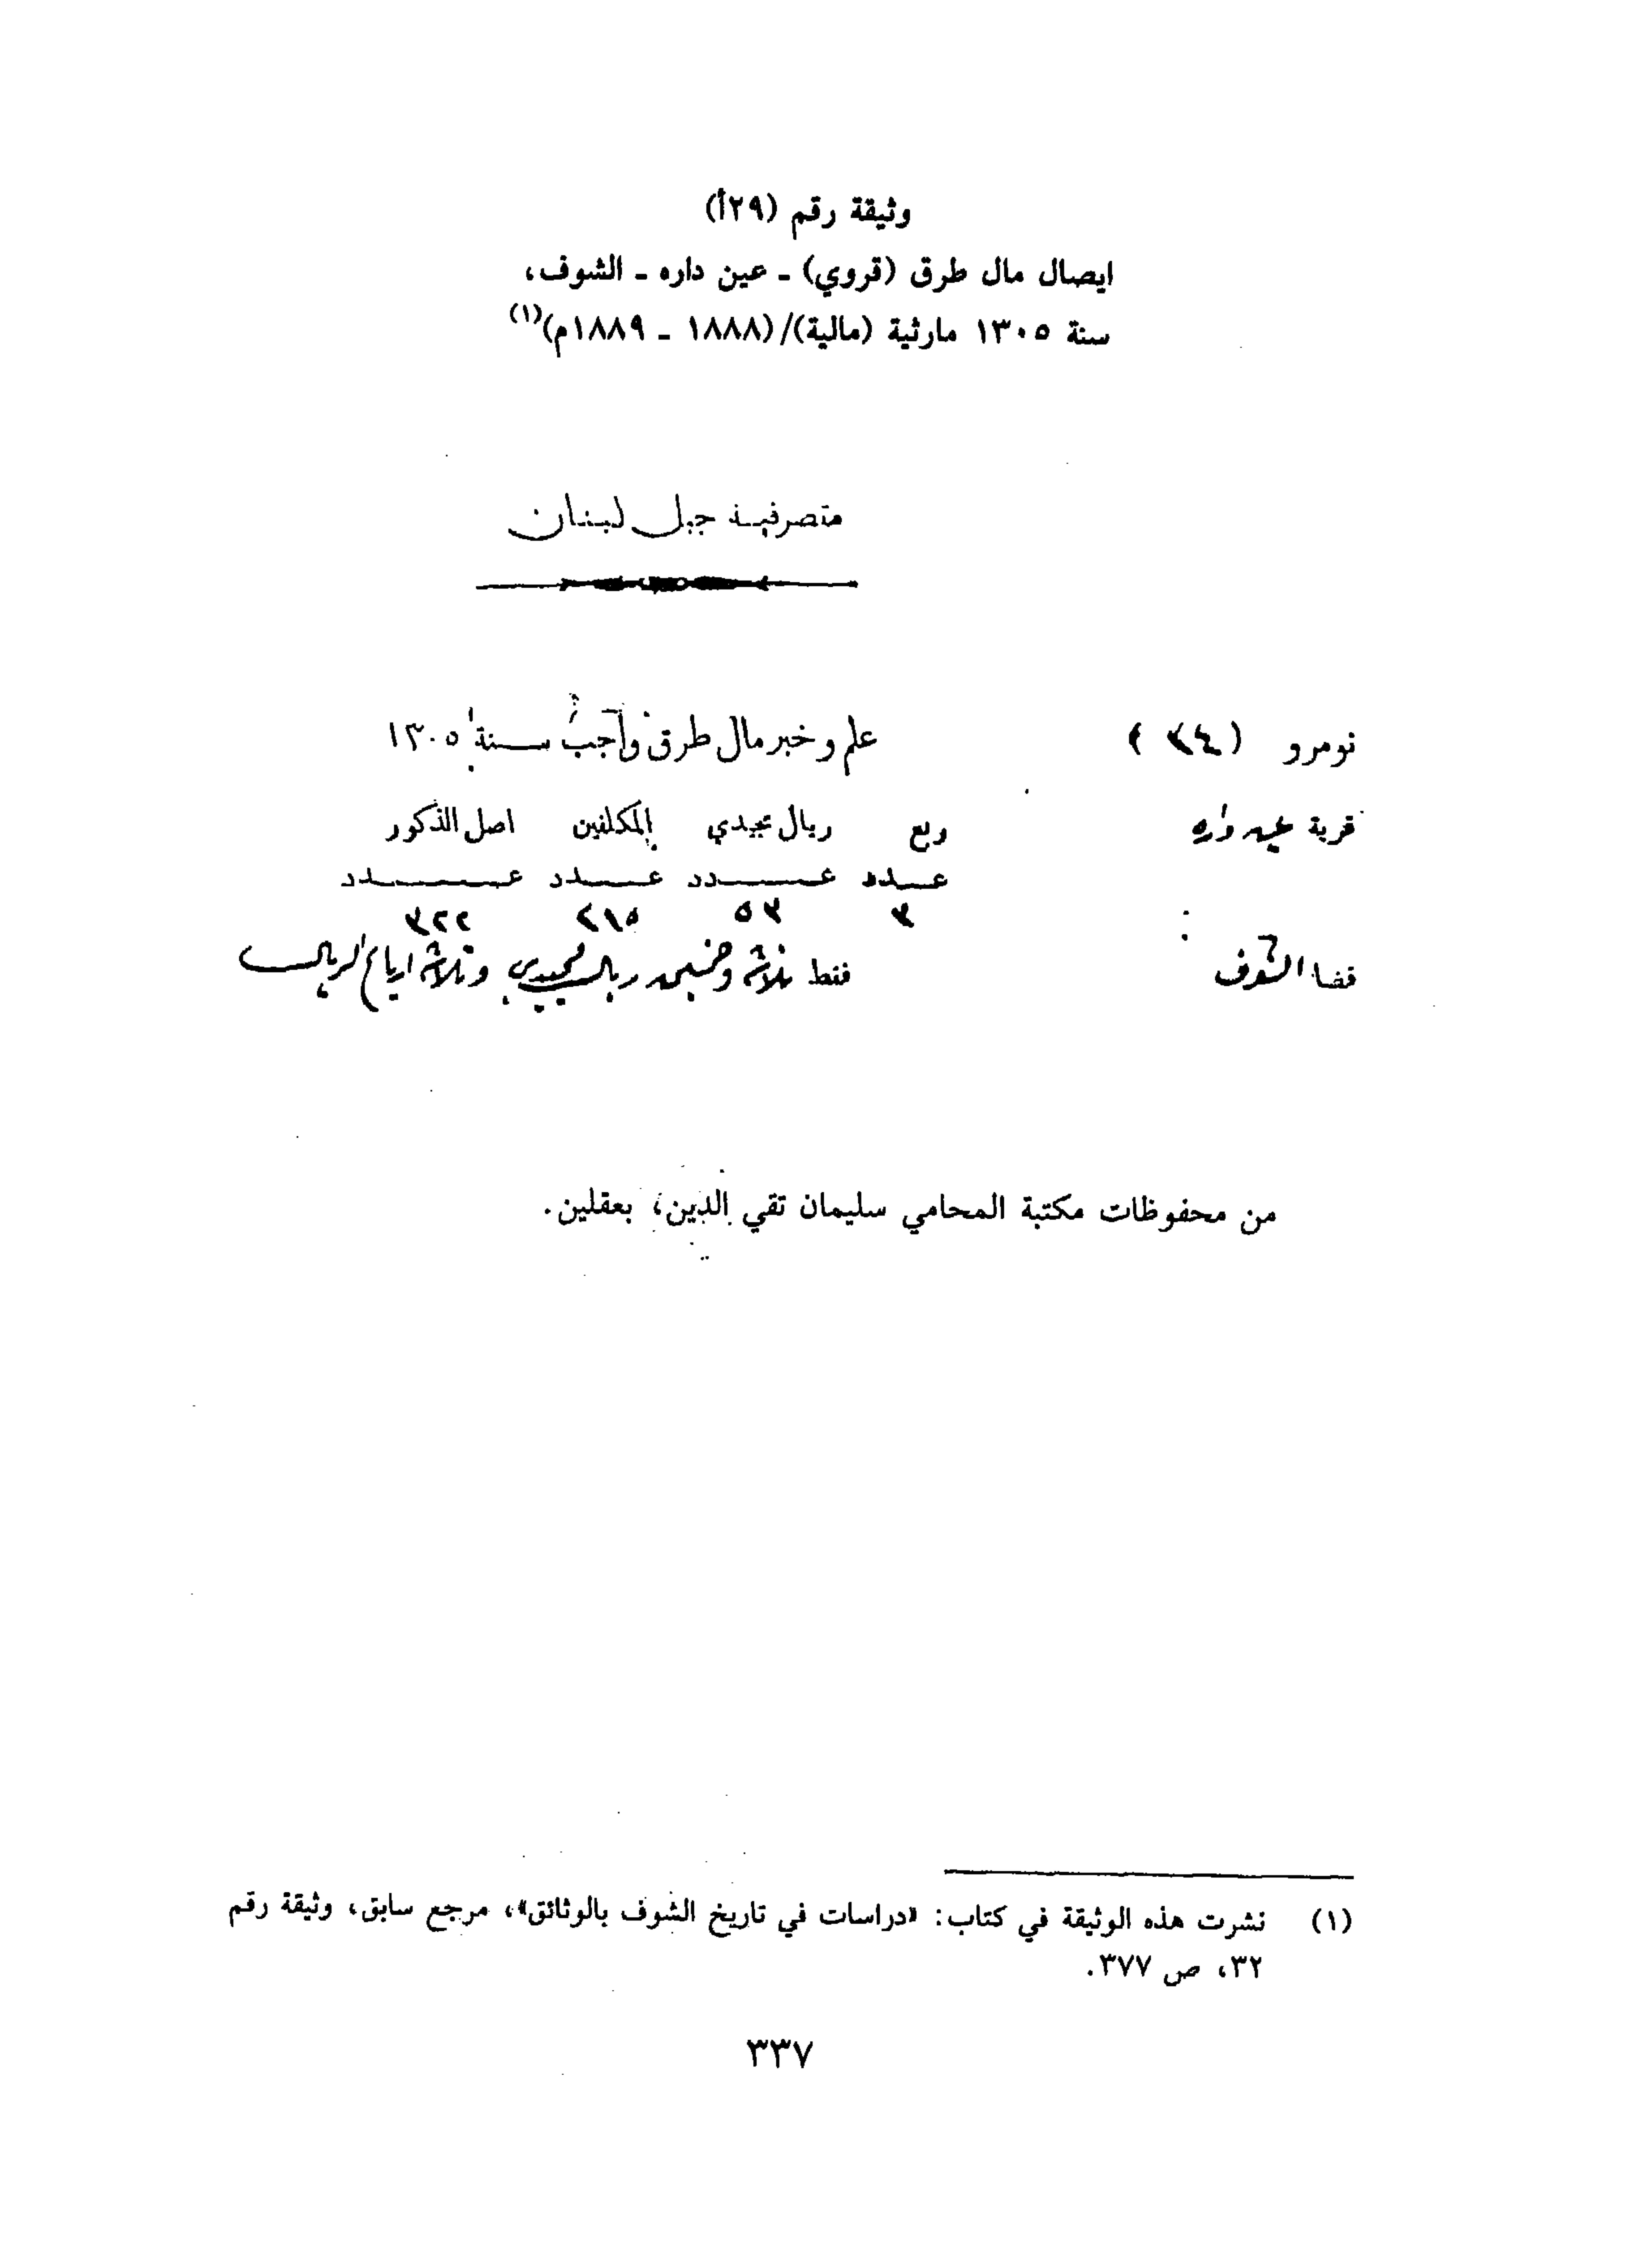 وثيقة رقم (٢٩أ)
ايصال مال طرق (قروي) ـ عين داره ـ الشوف،
سنة ١٣٠٥ مارثية (مالية)/(١٨٨٨ ـ ١٨٨٩م)(١)
متصرفية جبل لبنان
نومرو (٣٤) علم وخبر مال طرق واجب سنة ١٣٠٥
قرية عين داره ربع ريال مجيدي المكلفين اصل الذكور
عدد عدد عدد عدد
٣ ٥٣ ٢١٥ ٣٢٢
قضا الشوف فقط ثلاثة وخمسين ريال مجيدي وثلاثة ارباع الريال
من محفوظات مكتبة المحامي سليمان تقي الدين، بعقلين.
(١) نشرت هذه الوثيقة في كتاب: «دراسات في تاريخ الشوف بالوثائق»، مرجع سابق، وثيقة رقم
٣٢، ص ٣٧٧.
٣٣٧